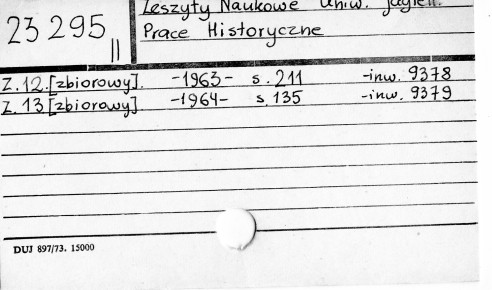 Zeszyty Naukowe Uniw. Jagiell.
23 295 II
Prace Historyczne
Z. 12. [zbiorowy]. -1963- s. 211 -inw. 9378
Z. 13 [zbiorowy] -1964- s. 135 -inw. 9379
DUJ 897/73. 15000